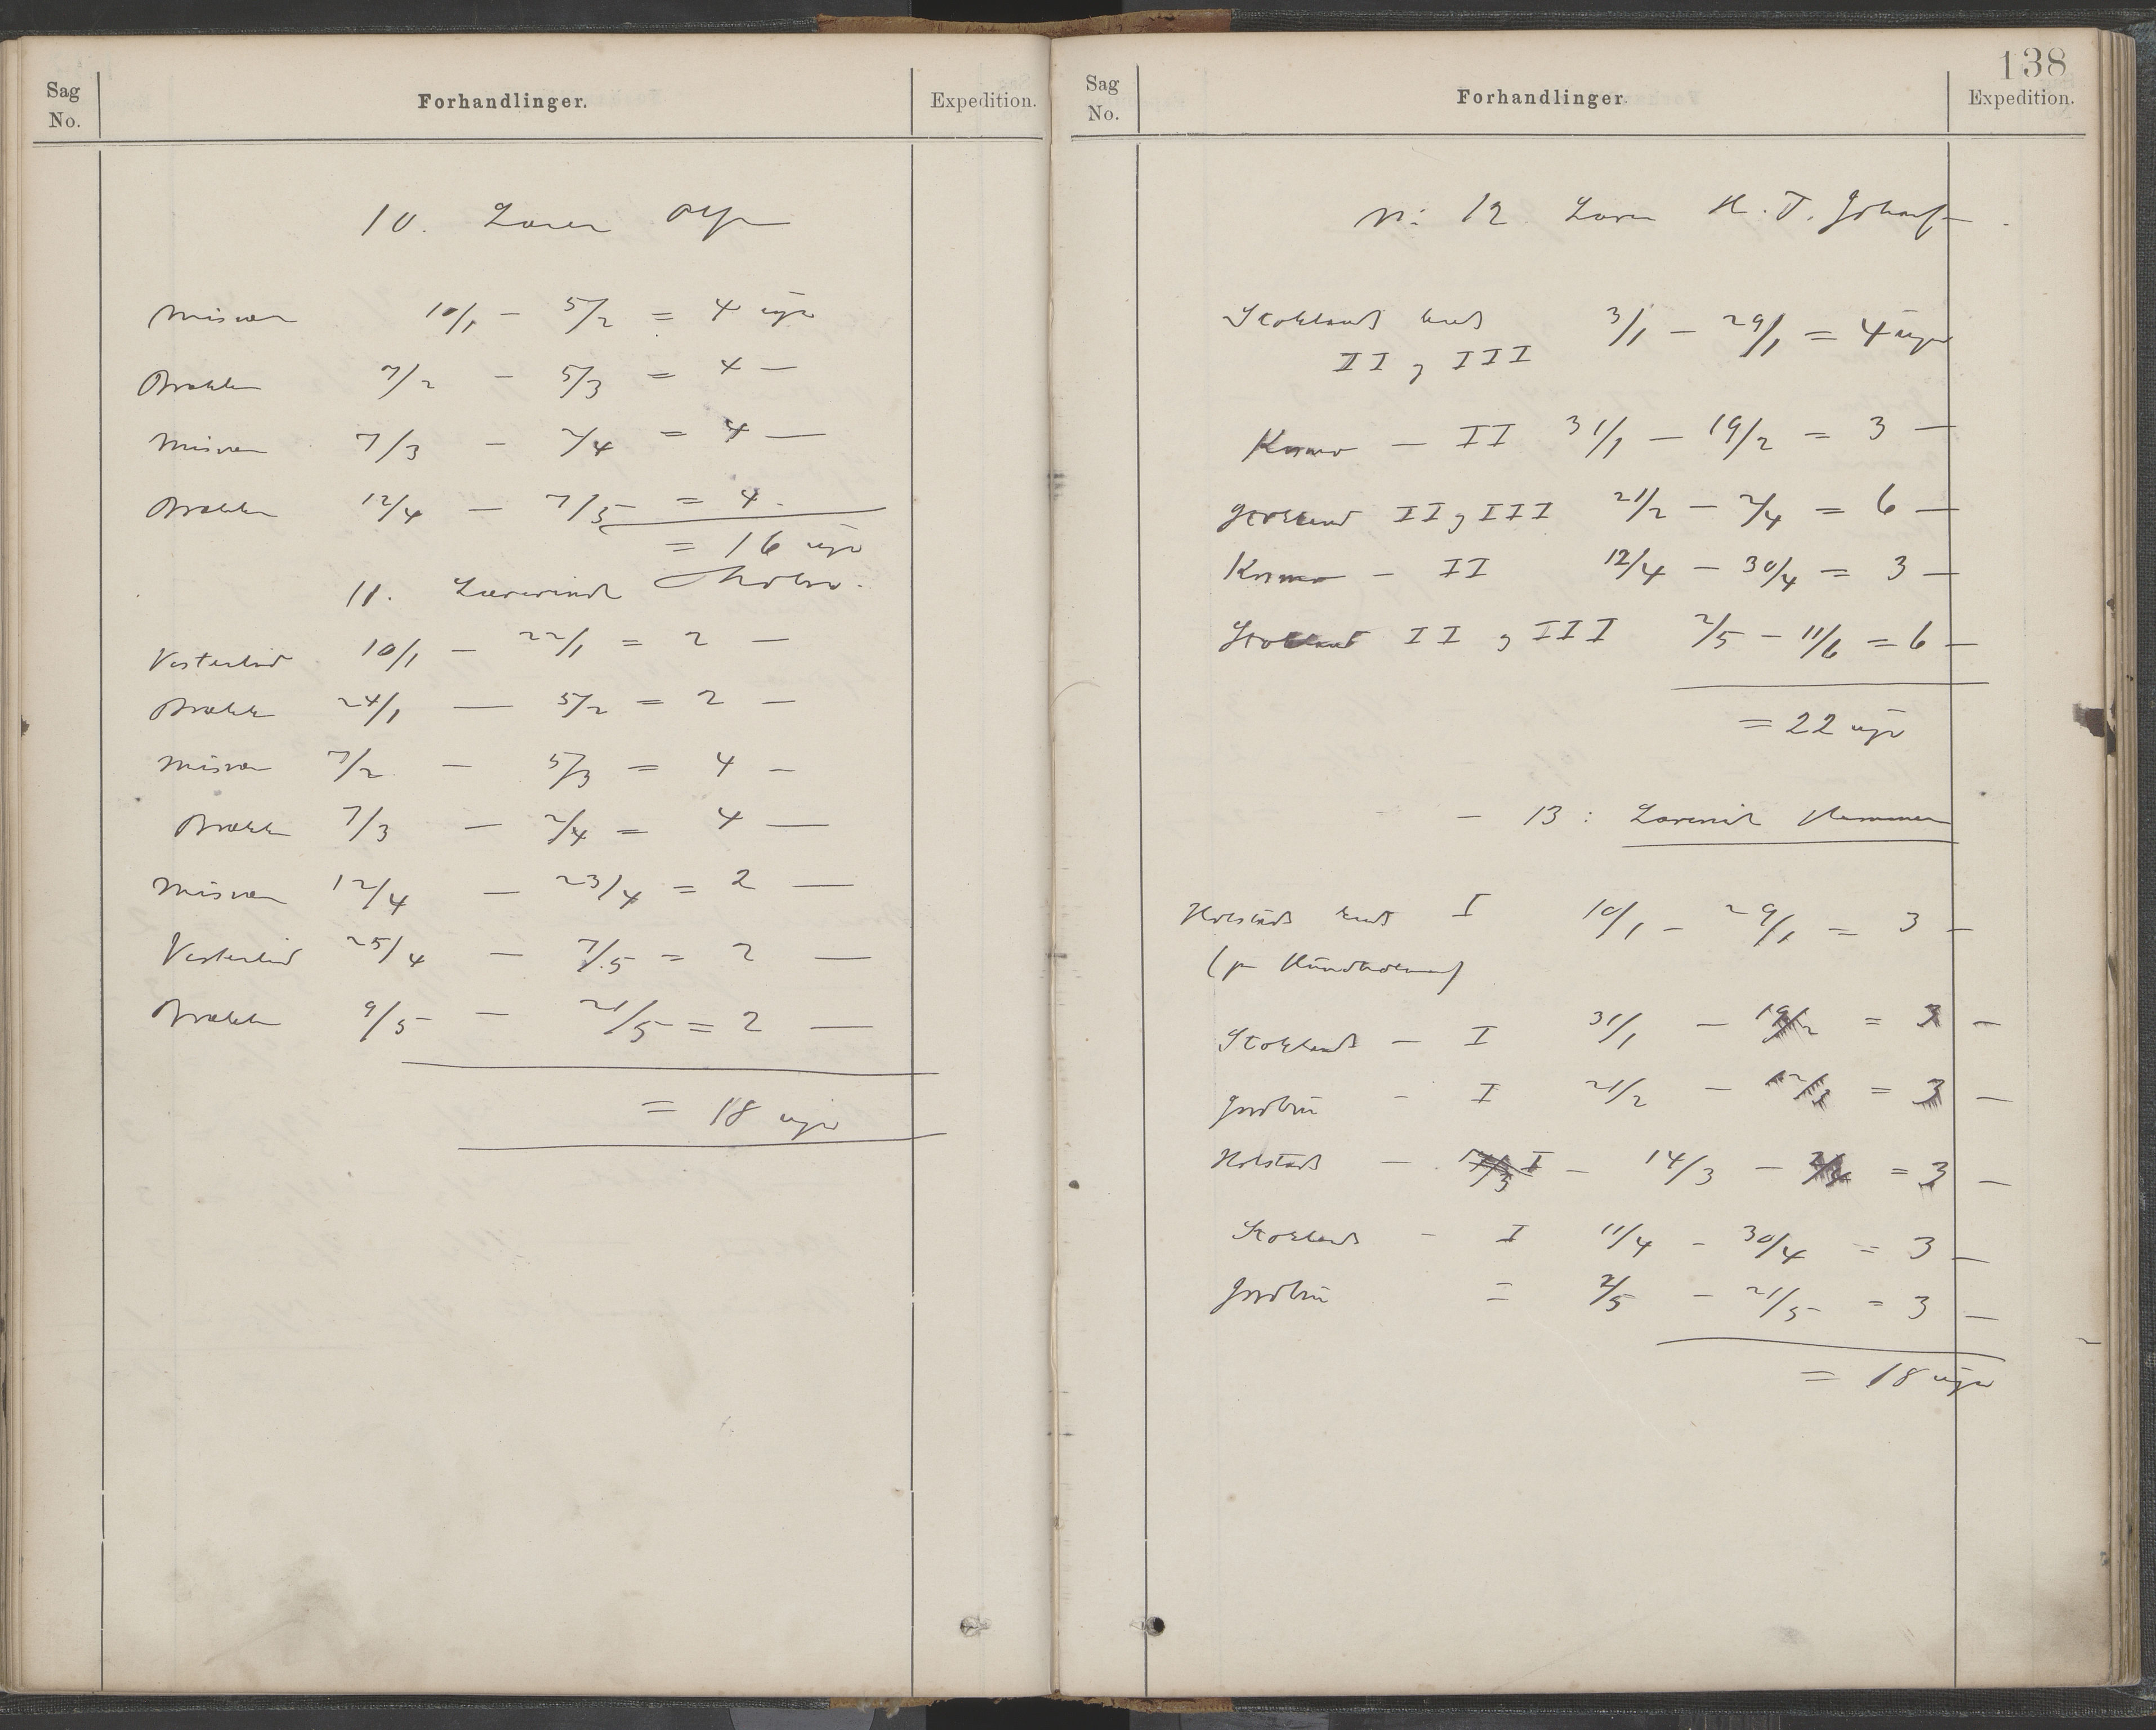 Sag No.
Forhandlinger.
Expedition.
10. Lærer Olsen
Misvær 10/1 - 5/2 = 4 uger
Brækken 7/2 - 5/3 = 4 —
Misvær 7/3 - 2/4 = 4 —
Brækken 12/4 - 7/5 = 4.
= 16 uger
11. Lærerinde
Vesterlid 10/1 - 22/1 = 2 —
Brække 24/1 — 5/2 = 2 —
Misvær 7/2 - 5/3 = 4 -
Brække 7/3 - 2/4 = 4 —
Misvær 12/4 - 23/4 = 2 —
Vesterlid 25/4 - 7/5 = 2 —
Brække 9/5 - 21/5 = 2 —
= 18 uger
138
Sag No.
Forhandlinger.
Expedition.
N: 12 Lærer H. J. Johansen.
Stokland kreds 3/1 - 29/1 = 4 uger
II og III
Kosmo - II 31/1 - 19/2 = 3 —
Stokland II og III 21/2 - 2/4 = 6 —
Kosmo - II 12/4 - 30/4 = 3 —
Stokland II og III 2/5 - 11/6 = 6 —
= 22 uger
- 13: Lærerinde
Kreds I 10/1 - 29/1 = 3 —
(på Hundholmen)
Stoklands - I 31/1 - 19/2 = 3 —
Jordbru - I 21/2 - 12/3 = 3 —
I - 14/3 - 2/4 = 3 —
Stoklands - I 11/4 - 30/4 = 3 —
Jordbru = 2/5 - 21/5 = 3 —
= 18 uger